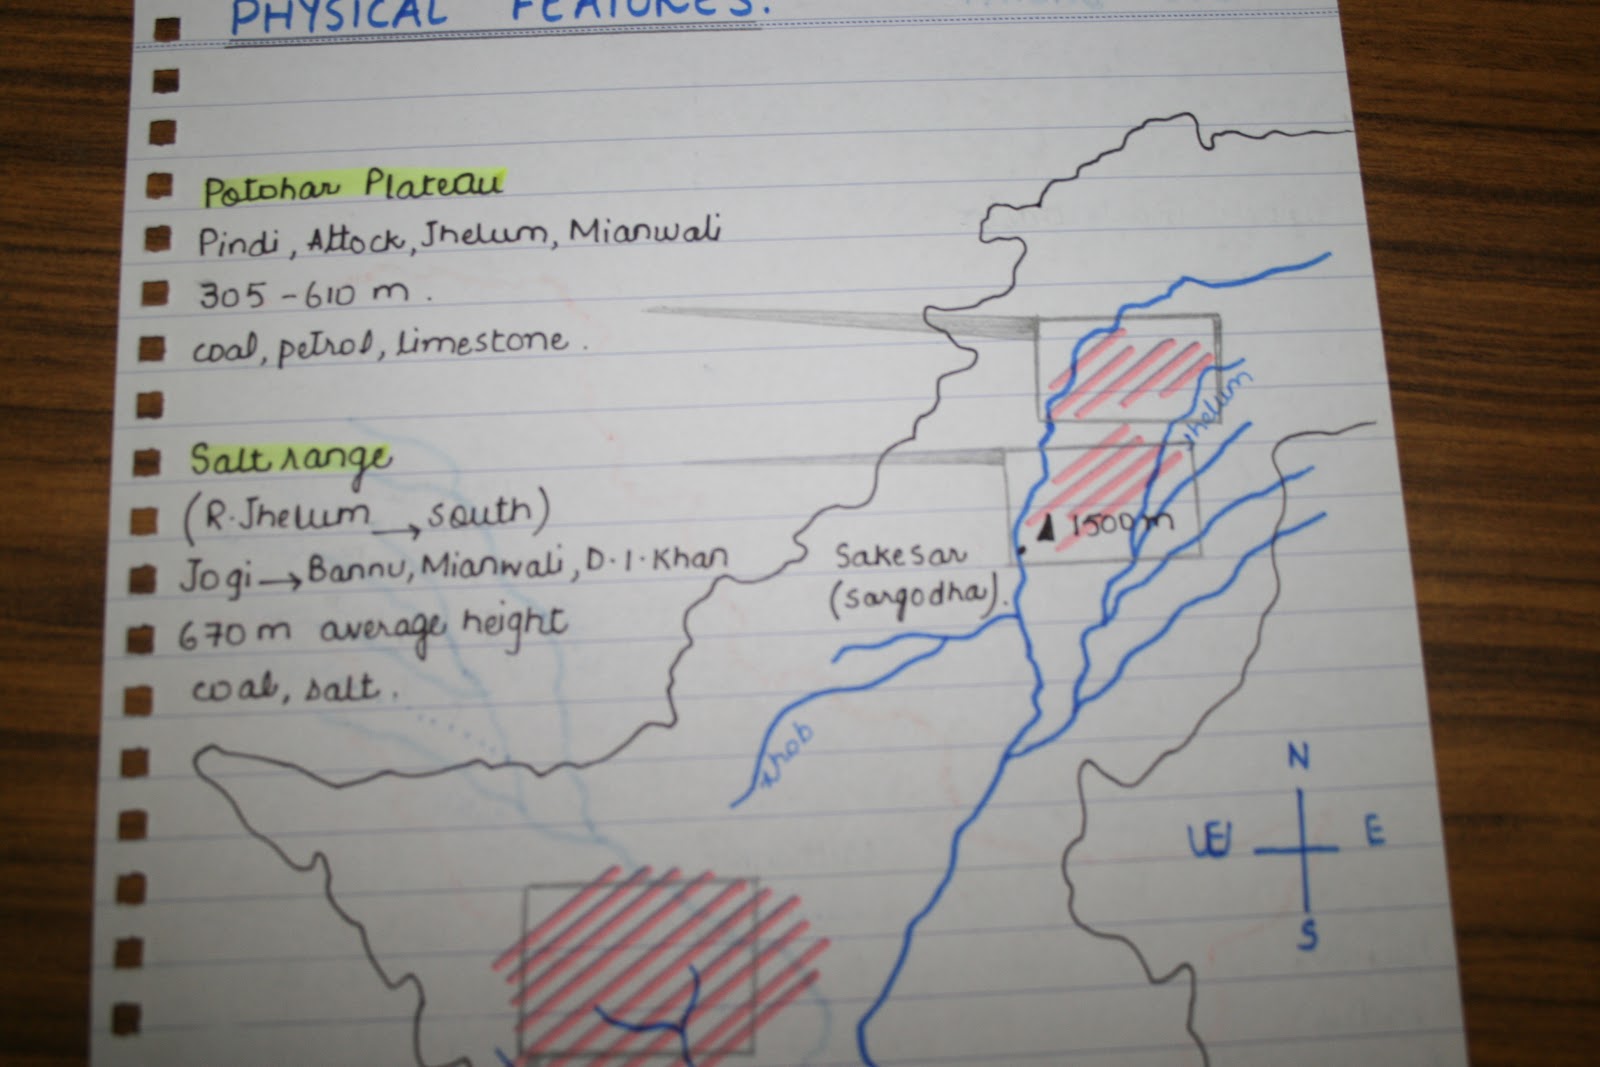 PHYSICAL FEATURES.
Potohar Plateau
Pindi, Attock, Jhelum, Mianwali
305 - 610 m.
coal, petrol, limestone.
Salt range
(R. Jhelum → south)
Jogi → Bannu, Mianwali, D.I.Khan
670 m average height
coal, salt.
Jhelum
1500 m
Sakesar
(sargodha).
zhob
N
W
E
S